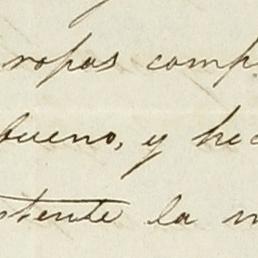 ropas comp
bueno, y hec
stente la m